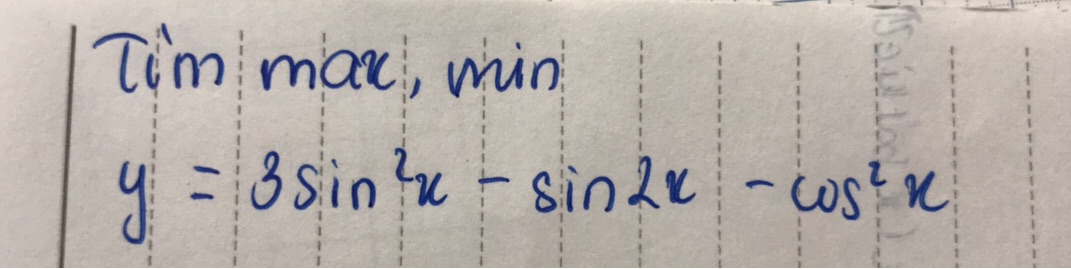 Tìm max, min
y = 3sin²x - sin2x - cos²x